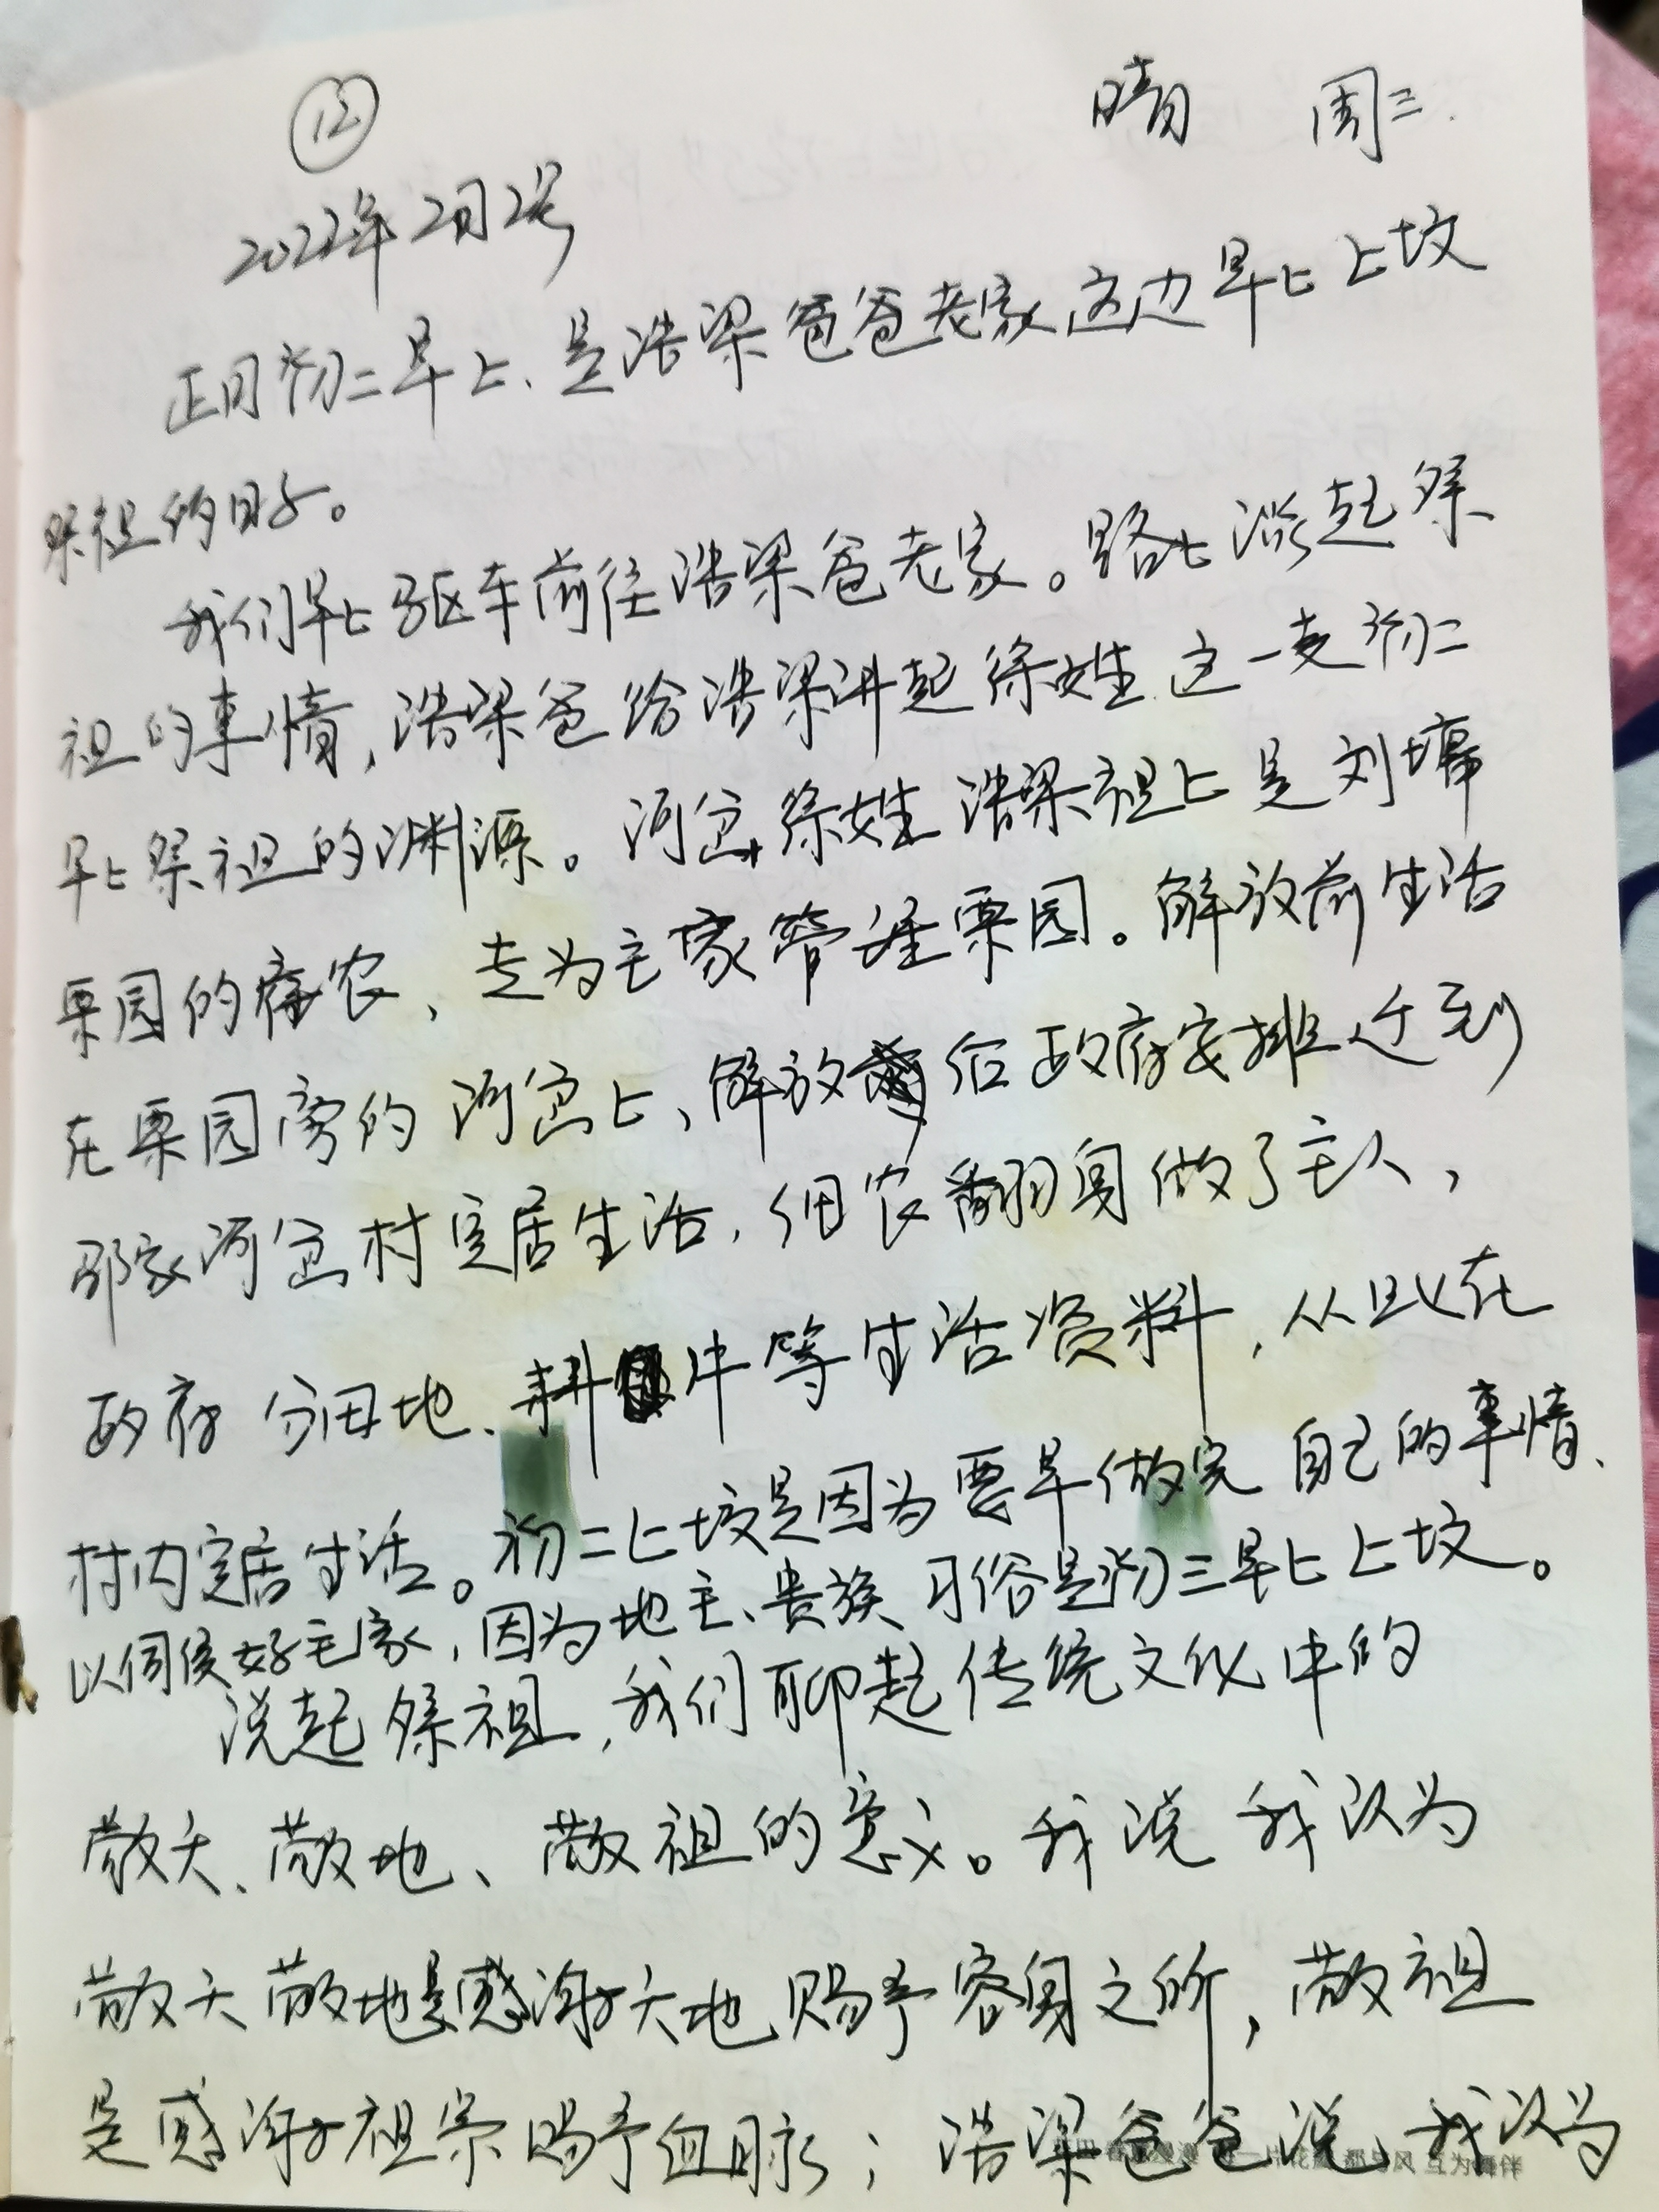 ⑫
晴 周三.
2022年2月2号
正月初二早上、是浩梁爸爸老家这边早上上坟
祭祖的日子。
我们早上驱车前往浩梁爸老家。路上谈起祭
祖的事情,浩梁爸给浩梁讲起徐姓这一支初二
早上祭祖的渊源。河岔徐姓浩梁祖上是刘墉
栗园的佃农、专为主家管理栗园。解放前生活
在栗园旁的河岔上、解放后政府安排迁到
邵家河岔村定居生活,佃农翻身做了主人,
政府分田地、耕牛等生活资料,从此在
村内定居生活。初二上坟是因为要早做完自己的事情、
以伺侯好主家,因为地主、贵族习俗是初三早上上坟。
说起祭祖,我们聊起传统文化中的
敬天、敬地、敬祖的意义。我说我认为
敬天敬地是感谢天地赐予容身之所,敬祖
是感谢祖宗赐予血脉;浩梁爸爸说,我认为